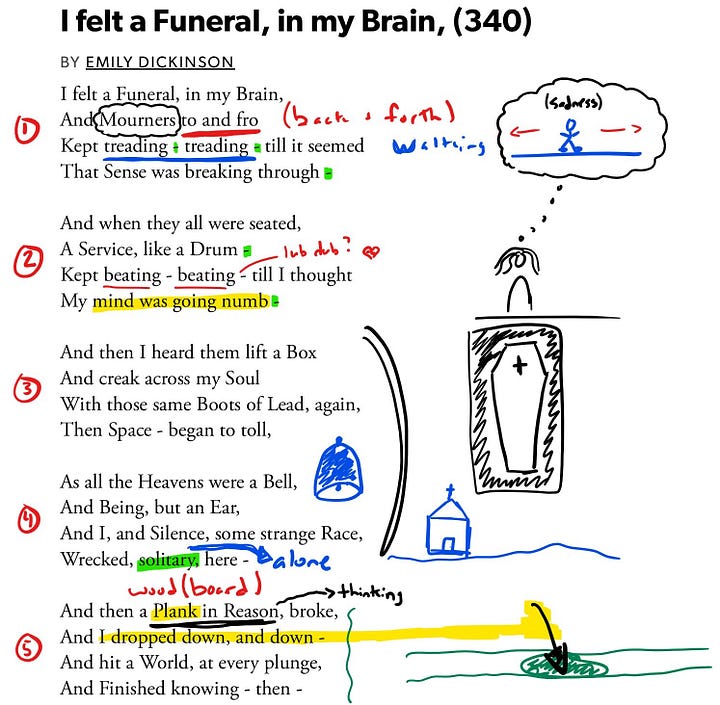 I felt a Funeral, in my Brain, (340)
BY EMILY DICKINSON
I felt a Funeral, in my Brain,
① And Mourners to and fro (back & forth)
Kept treading - treading - till it seemed walking
That Sense was breaking through -
(sadness)
And when they all were seated,
② A Service, like a Drum - lub dub?
Kept beating - beating - till I thought
My mind was going numb -
And then I heard them lift a Box
③ And creak across my Soul
With those same Boots of Lead, again,
Then Space - began to toll,
As all the Heavens were a Bell,
And Being, but an Ear,
④ And I, and Silence, some strange Race,
Wrecked, solitary, here - alone
wood (board) thinking
And then a Plank in Reason, broke,
⑤ And I dropped down, and down -
And hit a World, at every plunge,
And Finished knowing - then -